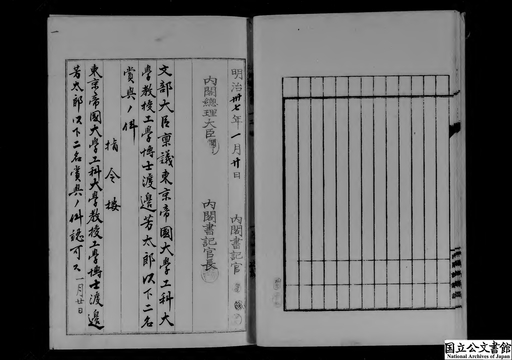 明治卅七年一月廿日
內閣書記官
內閣總理大臣
內閣書記官長
文部大臣稟議東京帝國大學工科大
學教授工學博士渡邊芳太郎以下二名
賞與ノ件
指令按
東京帝國大學工科大學教授工學博士渡邊
芳太郎以下二名賞與ノ件認可ス
一月廿日
国立公文書館
National Archives of Japan